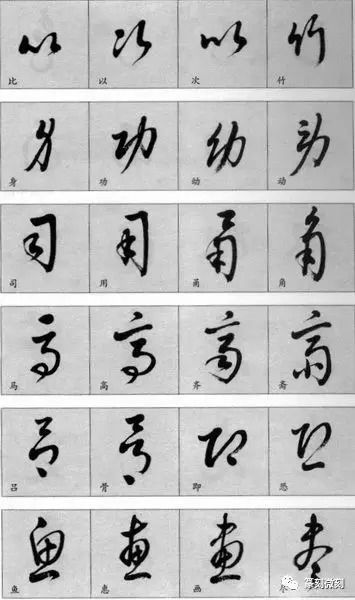 比 以 次 竹
身 功 幼 动
司 用 甬 角
马 高 齐 斋
吕 骨 即 恐
鱼 惠 画 尽
篆刻微刻